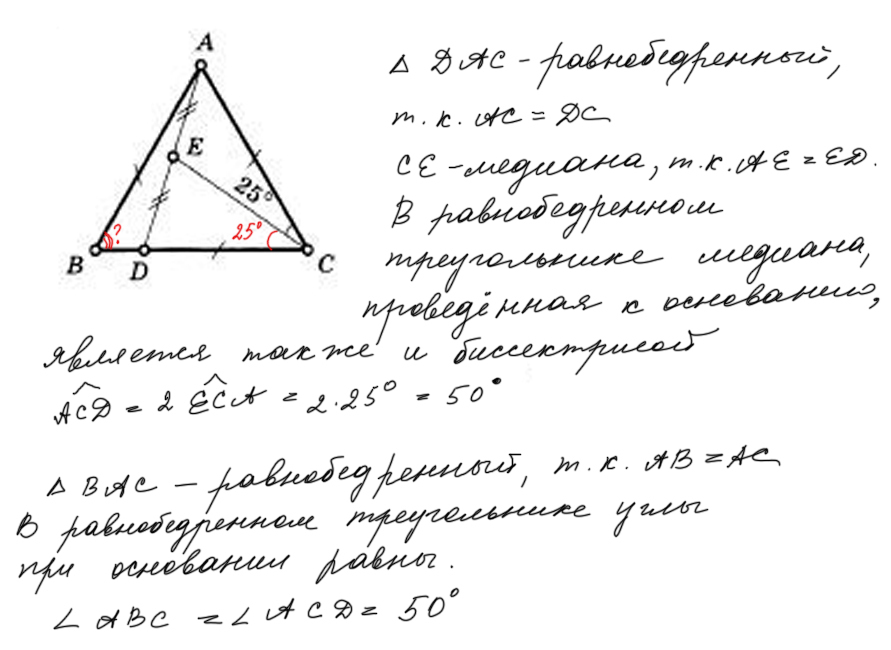 A
E
25°
?
25°
B
D
C
△ DAC – равнобедренный,
т.к. AC = DC
CE – медиана, т.к. AE = ED.
В равнобедренном
треугольнике медиана,
проведённая к основанию,
является также и биссектрисой
ACD = 2 ECA = 2·25° = 50°
△ BAC – равнобедренный, т.к. AB = AC
В равнобедренном треугольнике углы
при основании равны.
∠ ABC = ∠ ACD = 50°